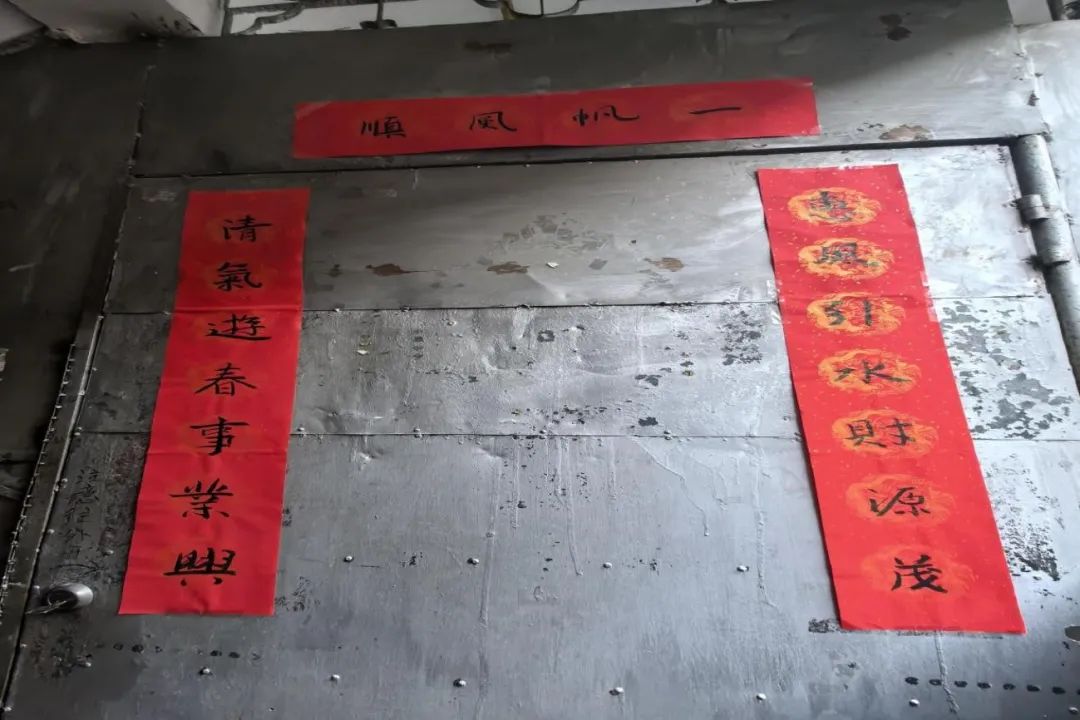 一帆風順
惠風引水財源茂
清氣遊春事業興